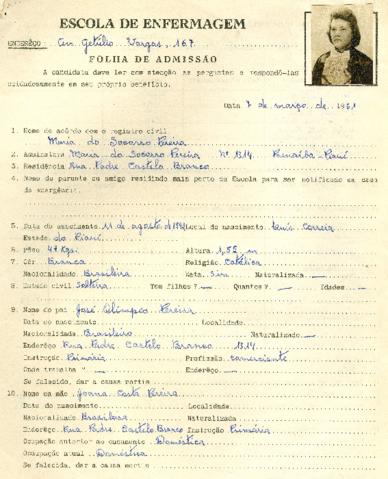 ESCOLA DE ENFERMAGEM
ENDERÊÇO Av. Getúlio Vargas, 167
FOLHA DE ADMISSÃO
A candidata deve ler com atenção as perguntas e respondê-las
cuidadosamente em seu próprio benefício.
Data 7 de março de 1961
1. Nome de acôrdo com o registro civil
Maria do Socorro Pereira
2. Assinatura Maria do Socorro Pereira Nº 1314 Parnaíba-Piauí
3. Residência Rua Padre Castelo Branco
4. Nome do parente ou amigo residindo mais perto da Escola para ser notificado em caso
de emergência.
5. Data do nascimento 11 de agosto de Local do nascimento Luís Correia
Estado do Piauí
6. Pêso 47 Kgs. Altura 1,52 m
7. Côr Branca Religião Católica
Nacionalidade Brasileira Nata Sim Naturalizada
8. Estado civil Solteira Tem filhos? Quantos? Idades
9. Nome do pai José Olímpio Pereira
Data do nascimento Localidade
Nacionalidade Brasileiro Naturalizado
Enderêço Rua Padre Castelo Branco 1314
Instrução Primária Profissão comerciante
Onde trabalha Enderêço
Se falecido, dar a causa mortis
10. Nome da mãe Joana Costa Pereira
Data do nascimento Localidade
Nacionalidade Brasileira Naturalizada
Enderêço Rua Padre Castelo Branco Instrução Primária
Ocupação anterior ao casamento Doméstica
Ocupação atual Doméstica
Se falecida, dar a causa mortis